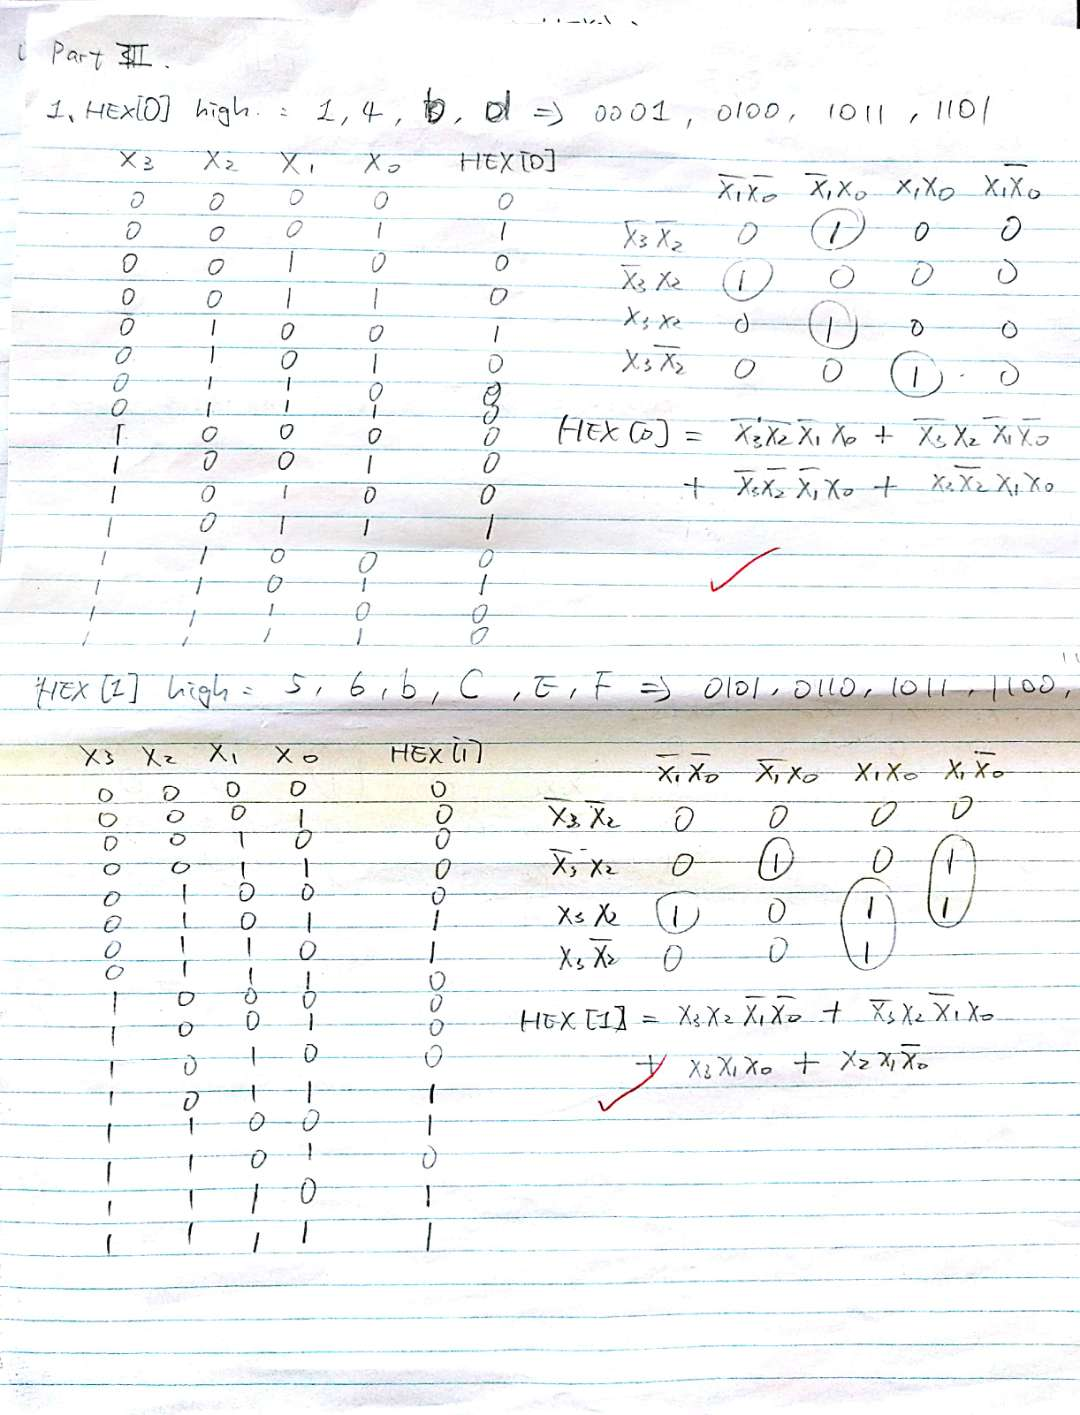 Part III.
1. HEX[0] high. : 1, 4, b, d ⇒ 0001, 0100, 1011, 1101
X3 X2 X1 X0 HEX[0]
0 0 0 0 0
0 0 0 1 1
0 0 1 0 0
0 0 1 1 0
0 1 0 0 1
0 1 0 1 0
0 1 1 0 0
0 1 1 1 0
1 0 0 0 0
1 0 0 1 0
1 0 1 0 0
1 0 1 1 1
1 1 0 0 0
1 1 0 1 1
1 1 1 0 0
1 1 1 1 0
X̅1X̅0 X̅1X0 X1X0 X1X̅0
X̅3X̅2 0 1 0 0
X̅3X2 1 0 0 0
X3X2 0 1 0 0
X3X̅2 0 0 1 0
HEX[0] = X̅3X̅2X̅1X0 + X̅3X2X̅1X̅0
+ X̅3X̅2X̅1X0 + X3X̅2X1X0
HEX[1] high = 5, 6, b, C, E, F ⇒ 0101, 0110, 1011, 1100,
X3 X2 X1 X0 HEX[1]
0 0 0 0 0
0 0 0 1 0
0 0 1 0 0
0 0 1 1 0
0 1 0 0 0
0 1 0 1 1
0 1 1 0 1
0 1 1 1 0
1 0 0 0 0
1 0 0 1 0
1 0 1 0 0
1 0 1 1 1
1 1 0 0 1
1 1 0 1 0
1 1 1 0 1
1 1 1 1 1
X̅1X̅0 X̅1X0 X1X0 X1X̅0
X̅3X̅2 0 0 0 0
X̅3X2 0 1 0 1
X3X2 1 0 1 1
X3X̅2 0 0 1
HEX[1] = X3X2X̅1X̅0 + X̅3X2X̅1X0
+ X3X1X0 + X2X1X̅0